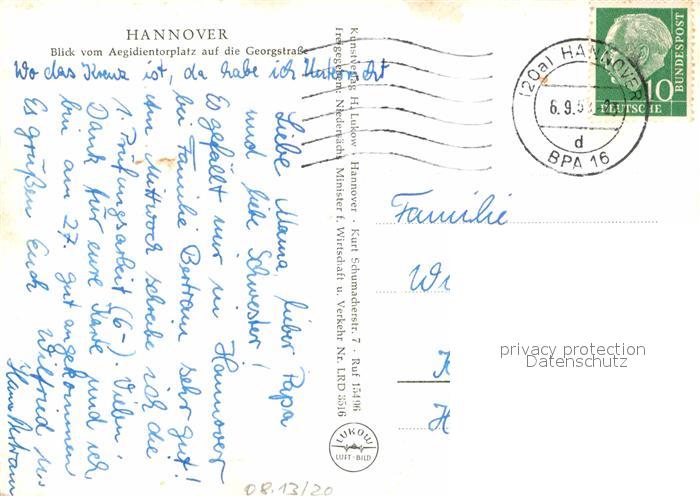 HANNOVER
Blick vom Aegidientorplatz auf die Georgstraße
Wo das Kreuz ist, da habe ich Unterricht
Liebe Mama, lieber Papa
und liebe Schwester!
Es gefällt mir in Hannover
bei Familie Bertram sehr gut!
Am Mittwoch schreibe ich die
1. Prüfungsarbeit (6-). Vielen
Dank für eure Karte und ich
bin am 27. gut angekommen
Es grüßen Euch Wilfried u.
Bertram
Kunstverlag H. Lukow · Hannover · Kurt Schumacherstr. 7 · Ruf 15496
Freigegeben: Niedersächs. Minister f. Wirtschaft u. Verkehr Nr. LRD 3516
LUKOW
LUFT-BILD
(20a) HANNOVER
6.9.5
d
BPA 16
DEUTSCHE
BUNDESPOST
10
Familie
W
H
privacy protection
Datenschutz
08.13/20